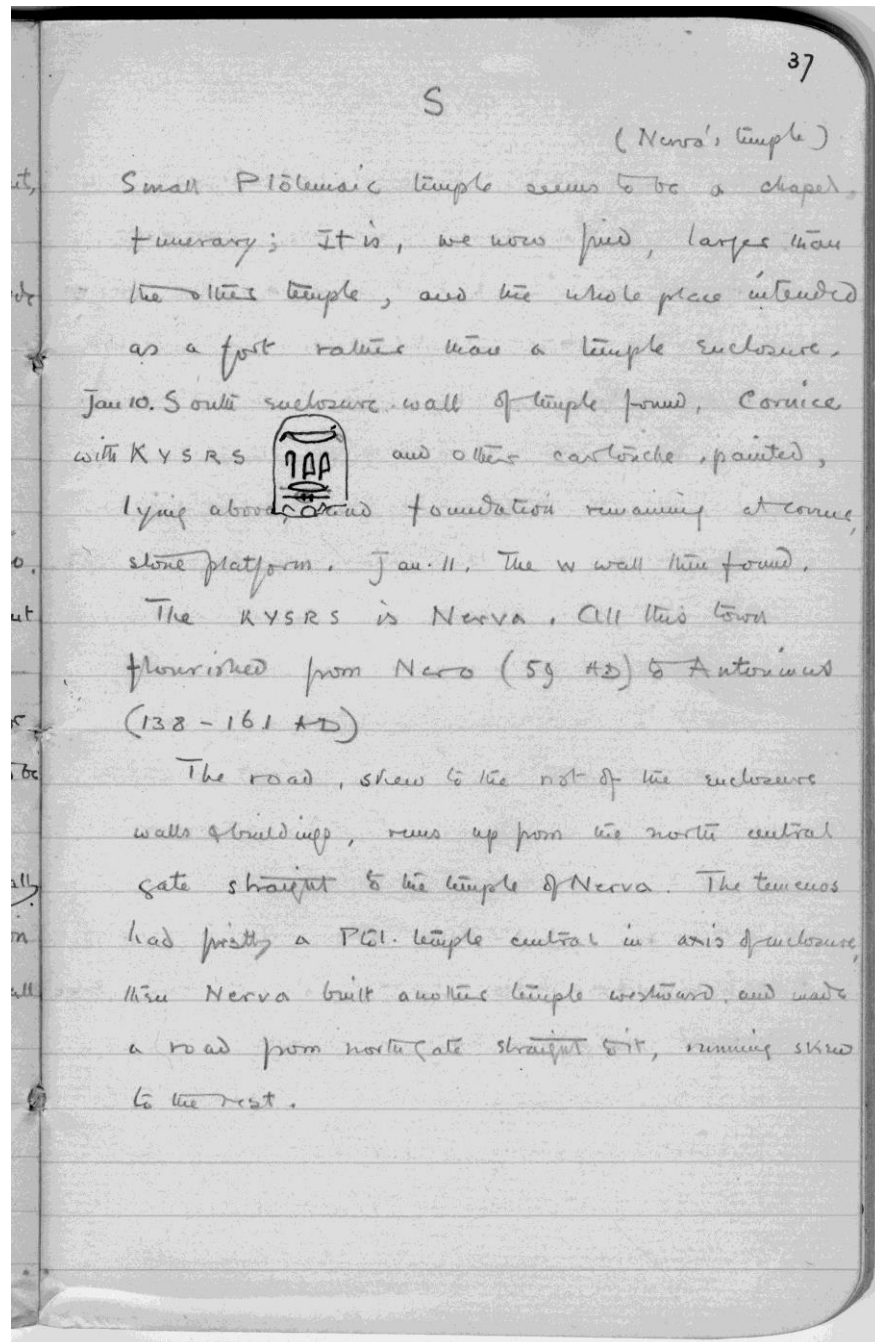 37
S
(Nerva's temple)
Small Ptolemaic temple seems to be a chapel,
funerary; It is, we now find, larger than
the other temple, and the whole place intended
as a fort rather than a temple enclosure.
Jan 10. South enclosure wall of temple found, Cornice
with KYSRS and other cartouche, painted,
lying above, and foundation remaining at corner,
stone platform. Jan. 11. The W wall then found.
The KYSRS is Nerva. All this town
flourished from Nero (59 AD) to Antoninus
(138 - 161 AD)
The road, skew to the rest of the enclosure
walls & buildings, runs up from the north central
gate straight to the temple of Nerva. The temenos
had firstly a Ptol. temple central in axis of enclosure,
then Nerva built another temple westward, and made
a road from north gate straight to it, running skew
to the rest.